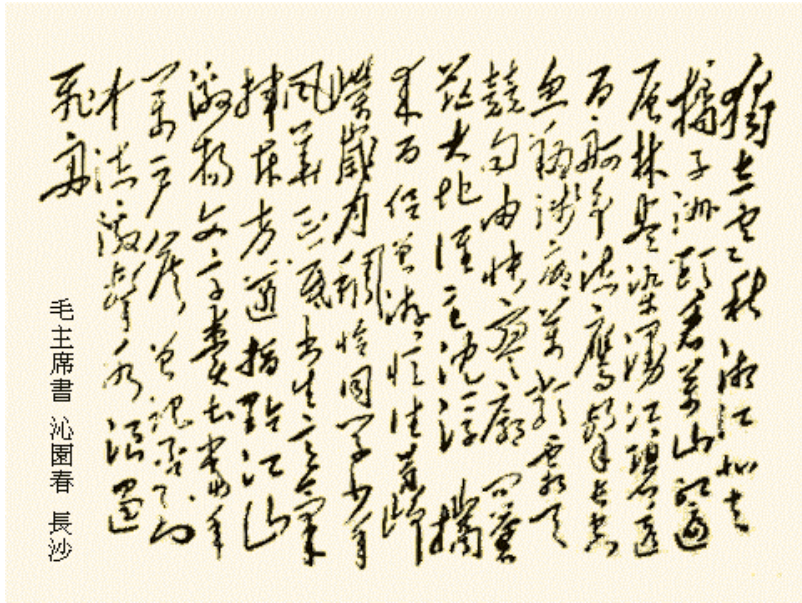 獨立寒秋湘江北去
橘子洲頭看萬山紅遍
層林盡染漫江碧透
百舸爭流鷹擊長空
魚翔淺底萬類霜天
競自由悵寥廓問蒼
茫大地誰主沉浮 攜
來百侶曾游憶往昔崢
嶸歲月稠恰同學少年
風華正茂書生意氣
揮斥方遒指點江山
激揚文字糞土當年
萬戶侯曾記否到
中流擊水浪遏
飛舟
毛主席書 沁園春 長沙